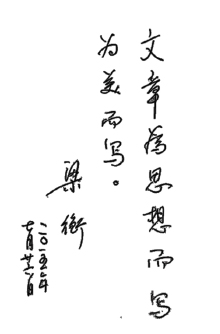 文章為思想而写
为美而写。
梁衡
二〇一五年
七月廿日